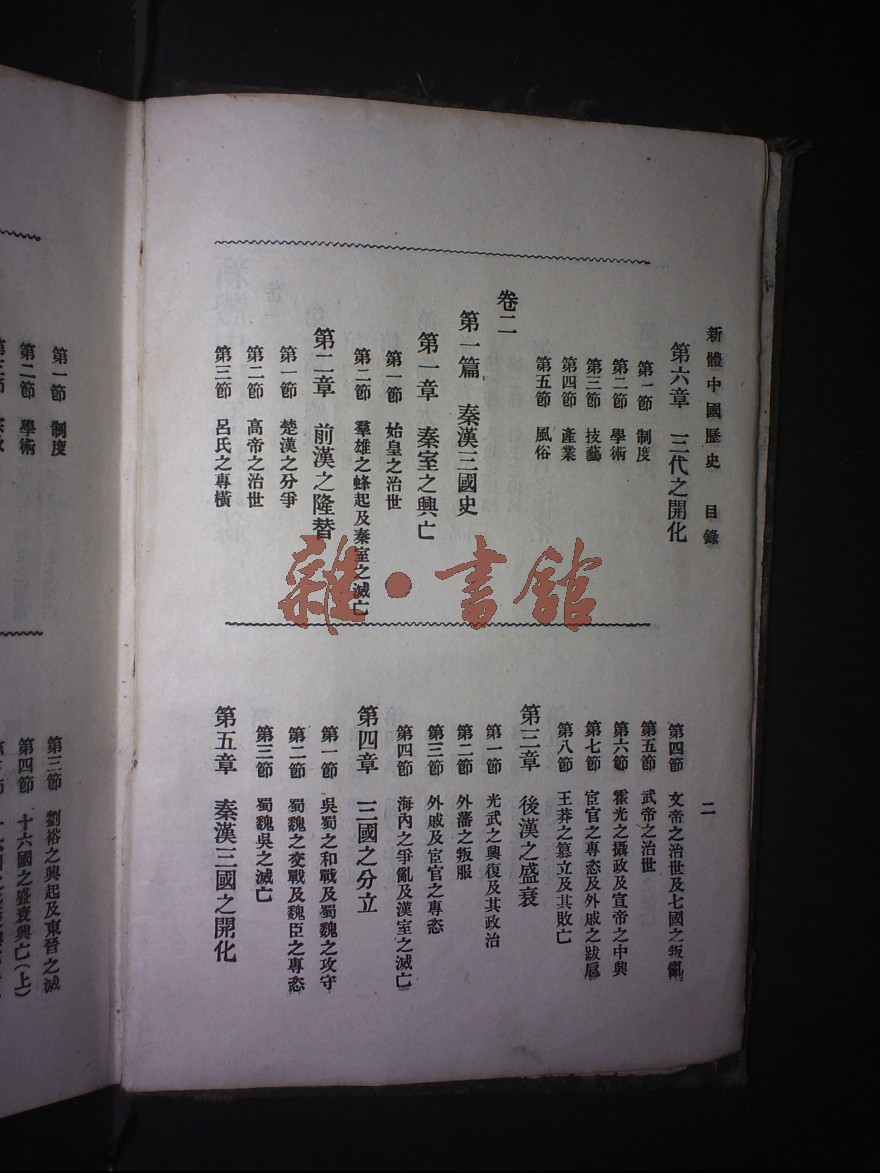 新體中國歷史 目錄
二
第六章 三代之開化
第一節 制度
第二節 學術
第三節 技藝
第四節 產業
第五節 風俗
卷二
第一篇 秦漢三國史
第一章 秦室之興亡
第一節 始皇之治世
第二節 羣雄之蜂起及秦室之滅亡
第二章 前漢之隆替
第一節 楚漢之分爭
第二節 高帝之治世
第三節 呂氏之專橫
第四節 文帝之治世及七國之叛亂
第五節 武帝之治世
第六節 霍光之攝政及宣帝之中興
第七節 宦官之專恣及外戚之跋扈
第八節 王莽之篡立及其敗亡
第三章 後漢之盛衰
第一節 光武之興復及其政治
第二節 外藩之叛服
第三節 外戚及宦官之專恣
第四節 海內之爭亂及漢室之滅亡
第四章 三國之分立
第一節 吳蜀之和戰及蜀魏之攻守
第二節 蜀魏之交戰及魏臣之專恣
第三節 蜀魏吳之滅亡
第五章 秦漢三國之開化
第一節 制度
第二節 學術
第三節 劉裕之興起及東晉之滅
第四節 十六國之盛衰興亡(上)
雜·書館